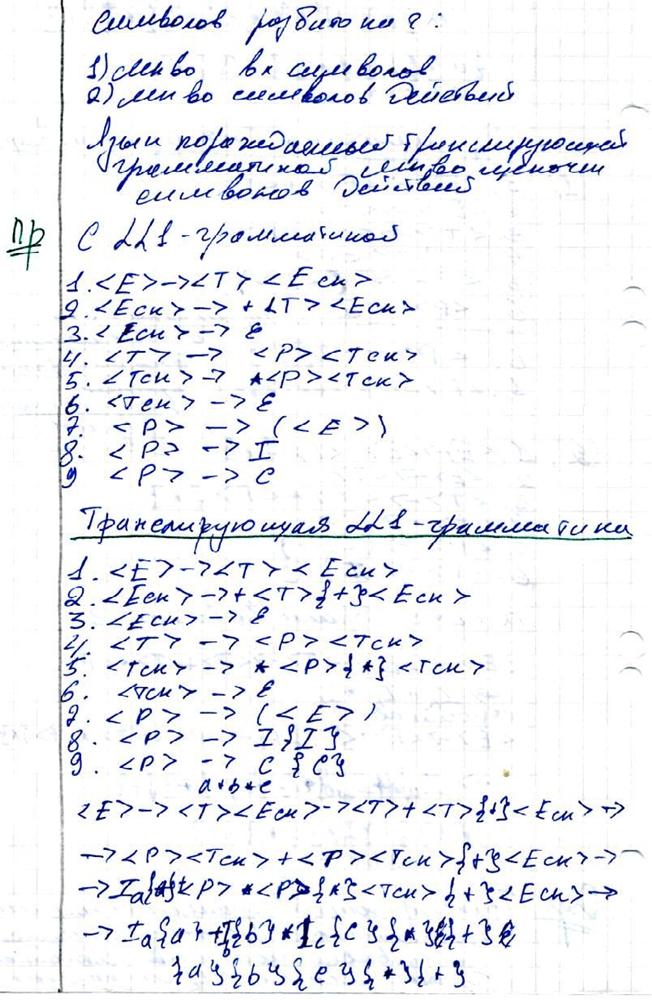 символов разбито на 2:
1) мн во вх символов
2) мн во символов действий
Язык порождаемый транслирующей
грамматикой мн во цепочки
символов действий
Пр С LL1-грамматикой
1. <E> -> <T> <Eсп>
2. <Eсп> -> + <T> <Eсп>
3. <Eсп> -> ε
4. <T> -> <P> <Tсп>
5. <Tсп> -> *<P> <Tсп>
6. <Tсп> -> ε
7. <P> -> (<E>)
8. <P> -> I
9 <P> -> C
Транслирующая LL1-грамматика
1. <E> -> <T> <Eсп>
2. <Eсп> -> + <T>{+}<Eсп>
3. <Eсп> -> ε
4. <T> -> <P> <Tсп>
5. <Tсп> -> * <P>{*} <Tсп>
6. <Tсп> -> ε
7. <P> -> (<E>)
8. <P> -> I{I}
9. <P> -> C {C}
a+b*c
<E> -> <T><Eсп> -> <T>+<T>{+}<Eсп> ->
-> <P><Tсп>+<P><Tсп>{+}<Eсп> ->
-> Ia{a}+<P>*<P>{*}<Tсп>{+}<Eсп> ->
-> Ia{a}+Ib{b}*Ic{c}{*}{+}
{a}{b}{c}{*}{+}